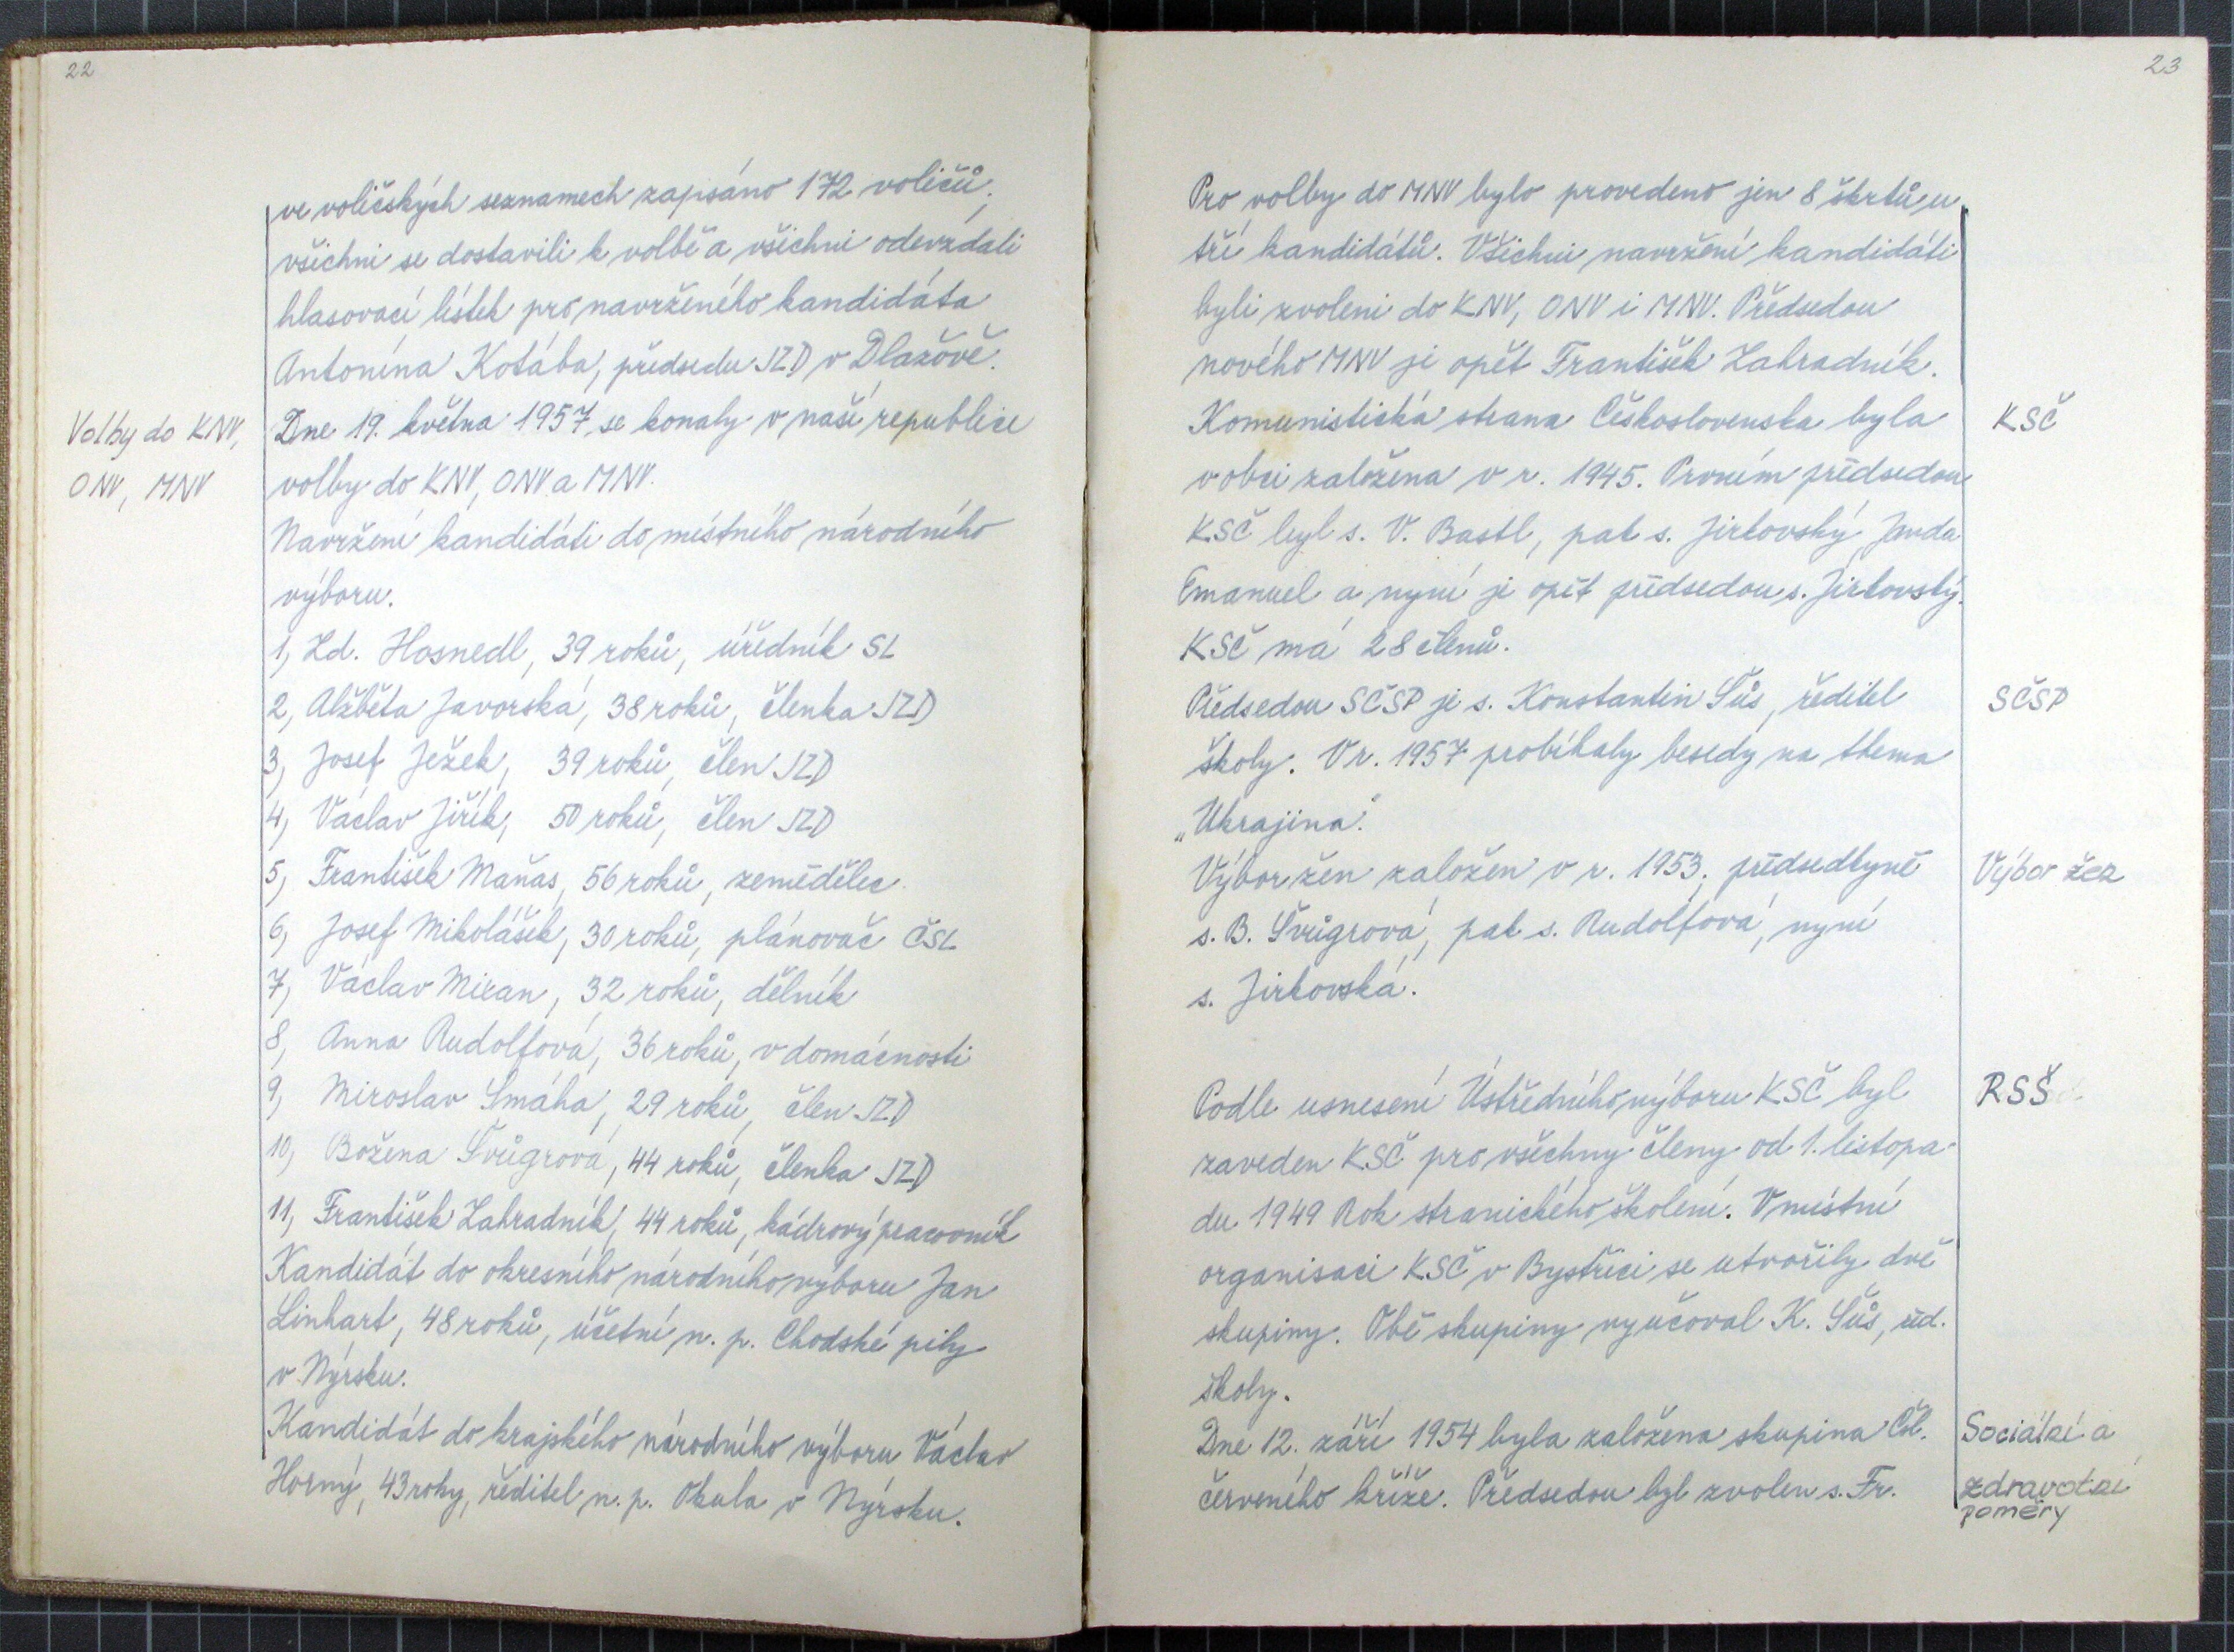 22
ve voličských seznamech zapsáno 172 voličů,
všichni se dostavili k volbě a všichni odevzdali
hlasovací lístek pro navrženého kandidáta
Antonína Kotába, předsedu JZD v Dlažově.
Volby do KNV,
ONV, MNV
Dne 19. května 1957 se konaly v naší republice
volby do KNV, ONV a MNV.
Navržení kandidáti do místního národního
výboru.
1, Zd. Hosnedl, 39 roků, úředník SL
2, Alžběta Javorská, 38 roků, členka JZD
3, Josef Ježek, 39 roků, člen JZD
4, Václav Jiřík, 50 roků, člen JZD
5, František Maňas, 56 roků, zemědělec
6, Josef Mikolášek, 30 roků, plánovač ČSL
7, Václav Mixan, 32 roků, dělník
8, Anna Rudolfová, 36 roků, v domácnosti
9, Miroslav Smáha, 29 roků, člen JZD
10, Božena Švůgrová, 44 roků, členka JZD
11, František Zahradník, 44 roků, kádrový pracovník
Kandidát do okresního národního výboru Jan
Linhart, 48 roků, účetní n. p. Chodské pily
v Nýrsku.
Kandidát do krajského národního výboru Václav
Horný, 43 roky, ředitel n. p. Okula v Nýrsku.
23
Pro volby do MNV bylo provedeno jen 8 škrtů u
tří kandidátů. Všichni navržení kandidáti
byli zvoleni do KNV, ONV i MNV. Předsedou
nového MNV je opět František Zahradník.
KSČ
Komunistická strana Československa byla
v obci založena v r. 1945. Prvním předsedou
KSČ byl s. V. Bastl, pak s. Jirkovský, Janda
Emanuel a nyní je opět předsedou s. Jirkovský.
KSČ má 28 členů.
SČSP
Předsedou SČSP je s. Konstantin Šůs, ředitel
školy. V r. 1957 probíhaly besedy na thema
„Ukrajina".
Výbor žen
Výbor žen založen v r. 1953, předsedkyně
s. B. Švůgrová, pak s. Rudolfová, nyní
s. Jirkovská.
RSŠ
Podle usnesení Ústředního výboru KSČ byl
zaveden KSČ pro všechny členy od 1. listopa-
du 1949 Rok stranického školení. V místní
organisaci KSČ v Bystřici se utvořily dvě
skupiny. Obě skupiny vyučoval K. Šůs, řed.
školy.
Sociální a
zdravotní
poměry
Dne 12. září 1954 byla založena skupina Čsl.
červeného kříže. Předsedou byl zvolen s. Fr.